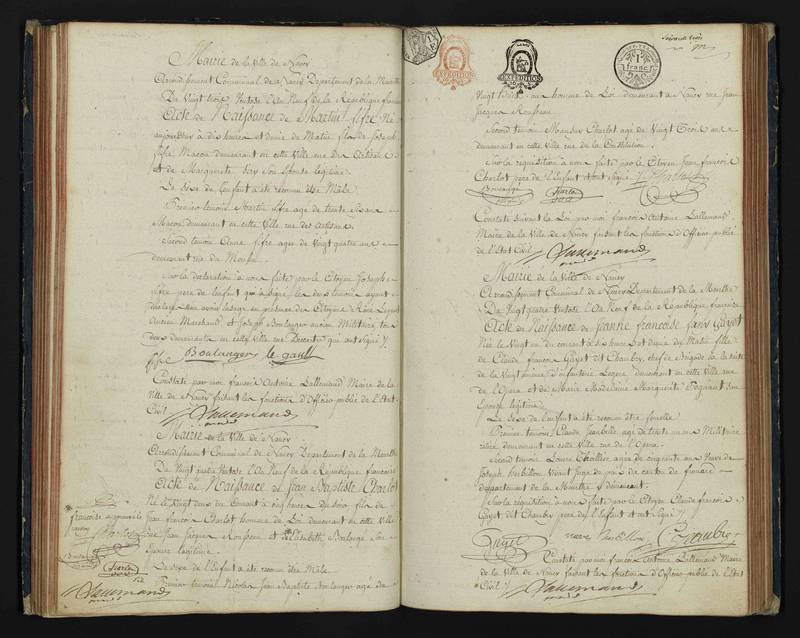 Mairie de la Ville de Nancy
Arrondissement Communal de Nancy Département de la Meurthe
Du Vingt trois Ventose l'An Neuf de la République française
Acte de Naissance de Martin fifre Né
aujourd'hui à dix heures et demie du Matin fils de Joseph
fifre Macon demeurant en cette Ville rue des Artisans
et de Marguerite son Epouse légitime
Le sexe de l'enfant a été reconnu être Mâle
Premier temoin Martin fifre agé de trente
Macon demeurant en cette Ville rue des Artisans
Second temoin Anne fifre agée de Vingt quatre ans
demeurant rue de
Sur la déclaration à nous faite par le Citoyen Joseph
fifre pere de l'enfant qui a signé les deux temoins ayant
en présence des Citoyens René Legault
ancien Marchand et Joseph Boulanger ancien Militaire tous
deux demeurants en cette Ville rue qui ont signé
fifre Boulanger le gault
Constaté par moi françois Antoine Lallemand Maire de la
Ville de Nancy faisant les fonctions d'Officier public de l'Etat
Civil Lallemand
Mairie de la Ville de Nancy
Arrondissement Communal de Nancy Département de la Meurthe
Du Vingt quatre Ventose l'An Neuf de la République française
Acte de Naissance de Jean Baptiste Charlot
Né le Vingt deux du Courant à onze heures du soir fils de
Jean françois Charlot homme de Loi demeurant en cette Ville
rue Jean Jacques Rousseau et Elisabeth Boulangé son
Epouse légitime
Le sexe de l'Enfant a été reconnu être Mâle
Premier temoin Nicolas Jean Baptiste Boulanger agé de
Charlot
Lallemand
EXPEDITION
EXPEDITION
1
franc
Vingt huit ans homme de Loi demeurant à Nancy rue Jean
Jacques Rousseau
Second temoin Charlot agé de Vingt Trois ans
demeurant en cette Ville rue de la Constitution
Sur la réquisition à nous faite par le Citoyen Jean françois
Charlot pere de l'Enfant et ont signé
Constaté suivant la Loi par moi françois Antoine Lallemand
Maire de la Ville de Nancy faisant les fonctions d'Officier public
de l'Etat Civil Lallemand
Mairie de la Ville de Nancy
Arrondissement Communal de Nancy Département de la Meurthe
Du Vingt quatre Ventose l'An Neuf de la République française
Acte de Naissance de Jeanne françoise fanny Guyot
Née le Vingt un du courant à six heures et demie du Matin fille
de Claude françois Guyot dit Chambry, chef de Brigade à la suite
de la Vingt unième d'infanterie Légère demeurant en cette Ville rue
de l'Opera et de Marie Madeleine Marguerite son
Epouse légitime
Le sexe de l'enfant a été reconnu être femelle
Premier temoin Claude agé de trente un ans Militaire
retiré demeurant en cette Ville rue de l'Opera
Second temoin Louise agée de cinquante ans Veuve de
Joseph Herbillon vivant Juge de paix du canton de frouard
département de la Meurthe y demeurant
Sur la réquisition à nous faite par le Citoyen Claude françois
Guyot dit Chambry pere de l'Enfant et ont signé
Guyot veuve herbillon Chambry
Constaté par moi françois Antoine Lallemand Maire
de la Ville de Nancy faisant les fonctions d'Officier public de l'Etat
Civil Lallemand